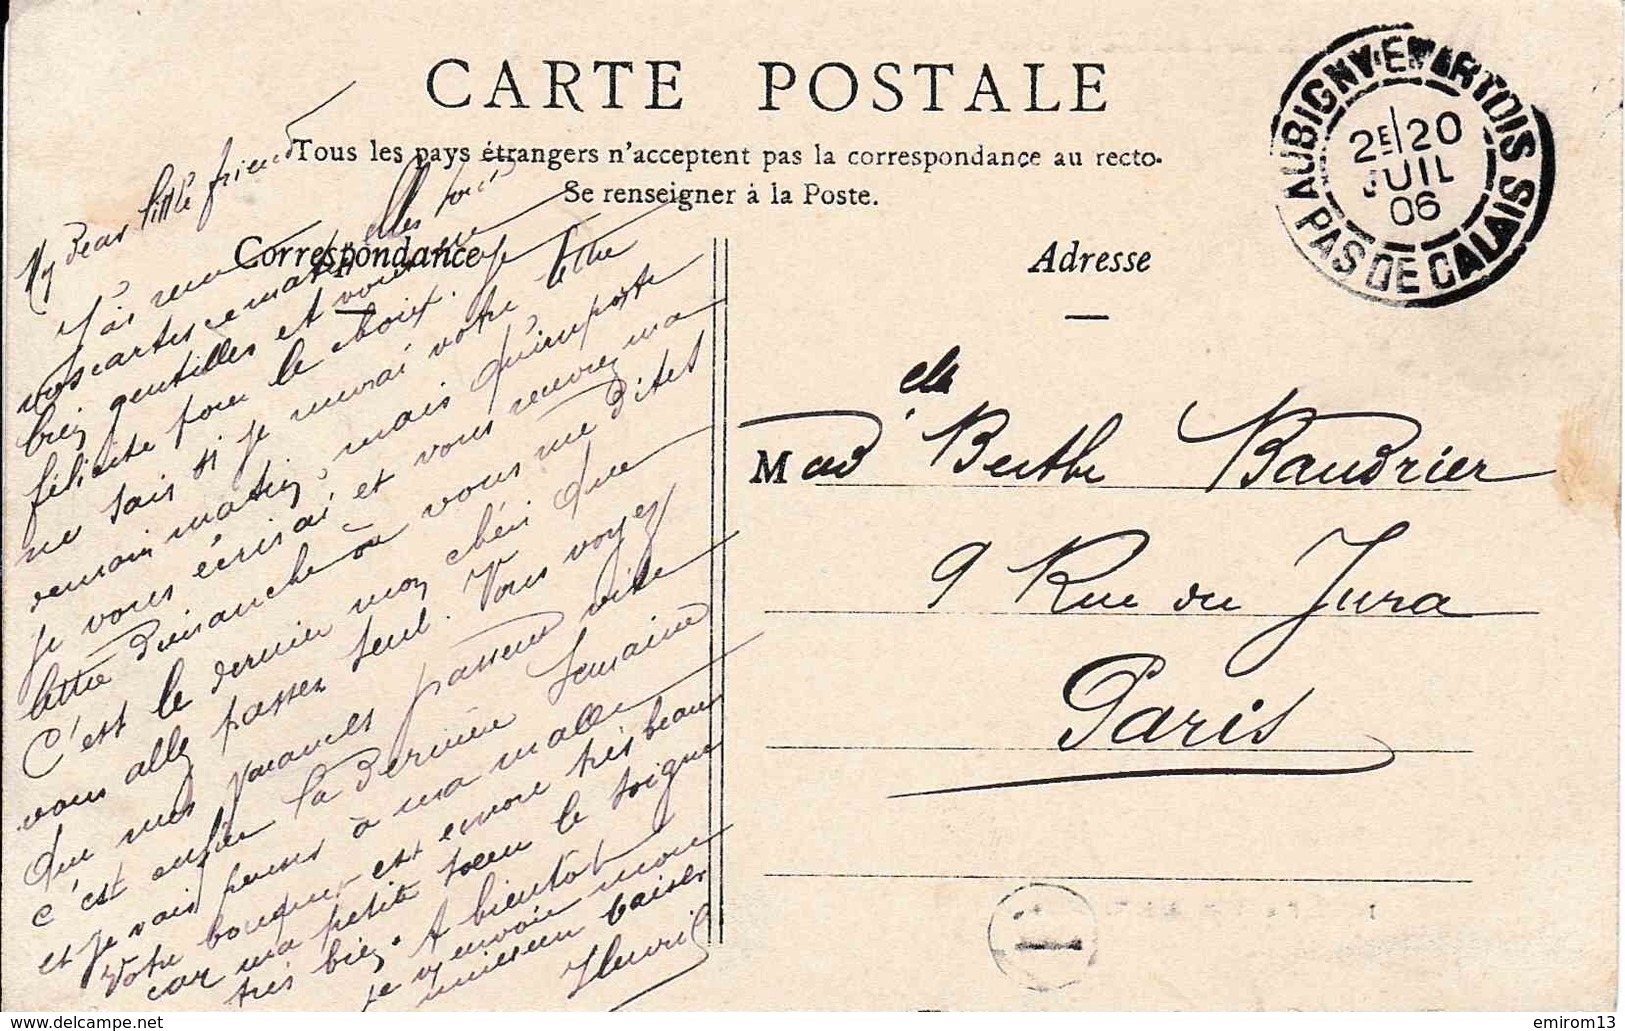 CARTE POSTALE
Tous les pays étrangers n'acceptent pas la correspondance au recto.
Se renseigner à la Poste.
Correspondance
Adresse
AUBIGNY-EN-ARTOIS
2E/20
JUIL
06
PAS DE CALAIS
My dear little friend
J'ai reçu
vos cartes ce matin elles sont
bien gentilles et vous
félicite pour le choix. Je
ne sais si je recevrai votre lettre
demain matin, mais qu'importe
je vous écrirai et vous recevrez ma
lettre dimanche où vous me dites
C'est le dernier mon chéri que
vous allez passer seul. Vous voyez
que mes vacances passent vite
c'est enfin la dernière semaine
et je vais penser à ma malle
Votre bouquet est encore très beau
car ma petite sœur le soigne
très bien. A bientôt
je vous envoie mon
meilleur baiser
Henri
Melle Berthe Baudrier
9 Rue du Jura
Paris
emirom13